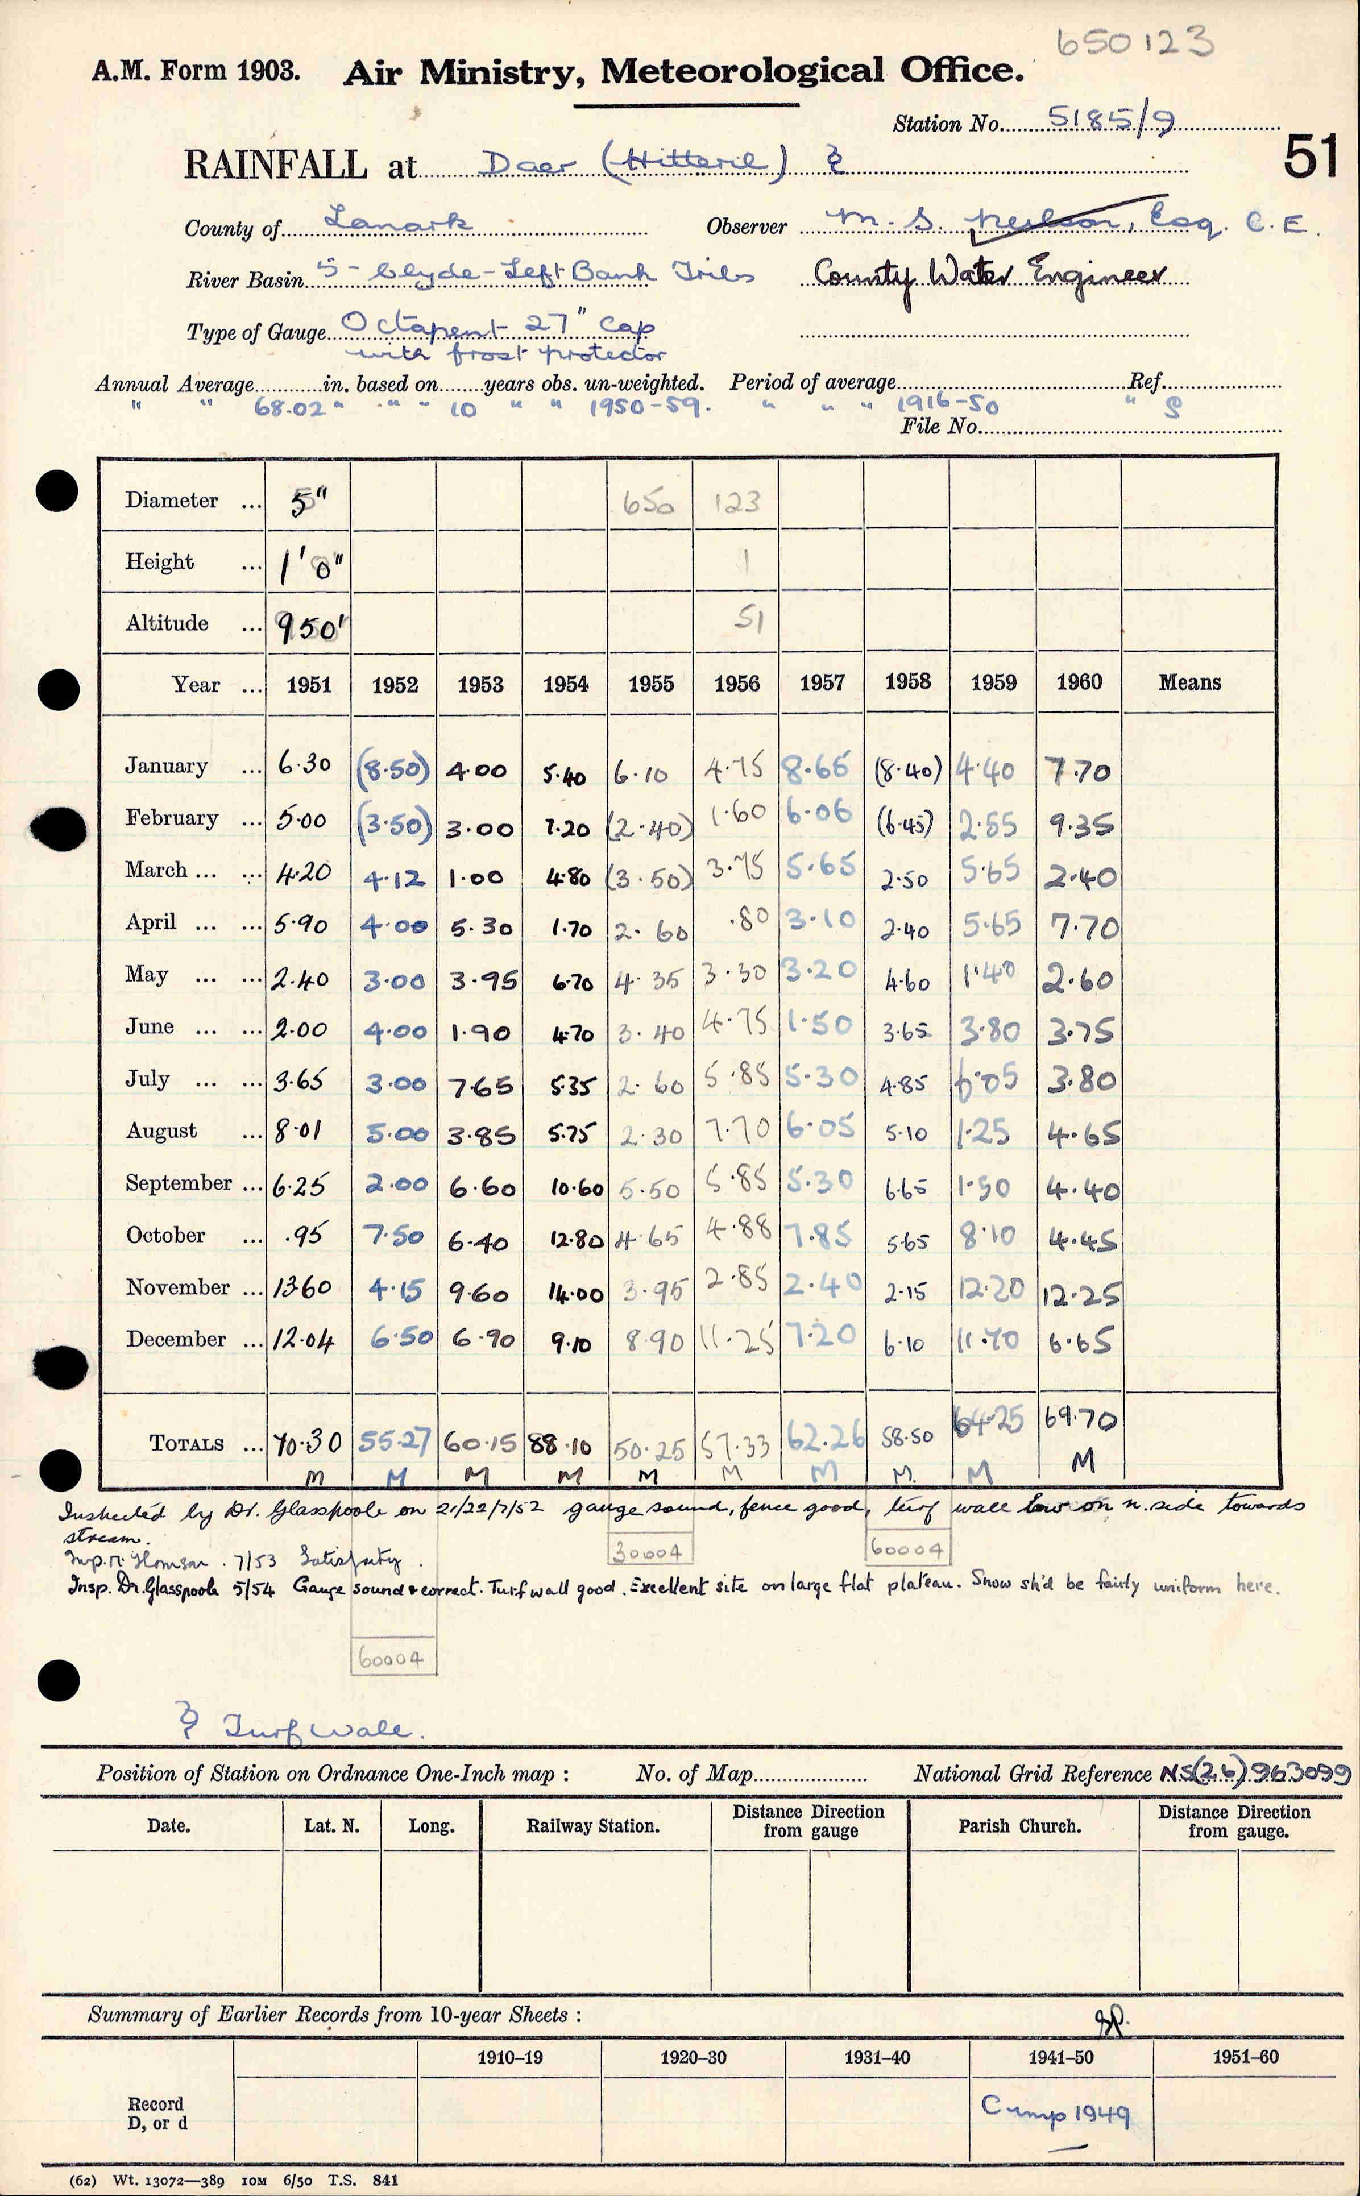 650123
A.M. Form 1903. Air Ministry, Meteorological Office.
Station No. 5185/9
51
RAINFALL at Daer (Hitteril) ⚷
County of Lanark Observer M. S. Neilson, Esq. C. E.
River Basin 5 - Clyde - Left Bank Tribs County Water Engineer
Type of Gauge Octapent 27" cap
with frost protector
Annual Average in. based on years obs. un-weighted. Period of average Ref.
" " 68.02" " " 10 " " 1950-59. " " " 1916-50 " S
File No.
Diameter ... 5" 650 123
Height ... 1' 0" 1
Altitude ... 950' 51
Year ... 1951 1952 1953 1954 1955 1956 1957 1958 1959 1960 Means
January ... 6.30 (8.50) 4.00 5.40 6.10 4.75 8.65 (8.40) 4.40 7.70
February ... 5.00 (3.50) 3.00 7.20 (2.40) 1.60 6.06 (6.45) 2.55 9.35
March ... ... 4.20 4.12 1.00 4.80 (3.50) 3.75 5.65 2.50 5.65 2.40
April ... ... 5.90 4.00 5.30 1.70 2.60 .80 3.10 2.40 5.65 7.70
May ... ... 2.40 3.00 3.95 6.70 4.35 3.30 3.20 4.60 1.40 2.60
June ... ... 2.00 4.00 1.90 4.70 3.40 4.75 1.50 3.65 3.80 3.75
July ... ... 3.65 3.00 7.65 5.35 2.60 5.85 5.30 4.85 6.05 3.80
August ... 8.01 5.00 3.85 5.75 2.30 7.70 6.05 5.10 1.25 4.65
September ... 6.25 2.00 6.60 10.60 5.50 5.85 5.30 6.65 1.50 4.40
October ... .95 7.50 6.40 12.80 4.65 4.88 7.85 5.65 8.10 4.45
November ... 13.60 4.15 9.60 14.00 3.95 2.85 2.40 2.15 12.20 12.25
December ... 12.04 6.50 6.90 9.10 8.90 11.25 7.20 6.10 11.70 6.65
TOTALS ... 70.30 55.27 60.15 88.10 50.25 57.33 62.26 58.50 64.25 69.70
M M M M M M M M M M
Inspected by Dr. Glasspoole on 21/22/7/52 gauge sound, fence good, turf wall low on n. side towards
stream.
Insp. 7/53 Satisfactory.
30004 60004
Insp. Dr. Glasspoole 5/54 Gauge sound & correct. Turf wall good. Excellent site on large flat plateau. Snow sh'd be fairly uniform here.
60004
⚷ Turf wall.
Position of Station on Ordnance One-Inch map : No. of Map National Grid Reference NS(26)963099
Date. Lat. N. Long. Railway Station. Distance Direction from gauge Parish Church. Distance Direction from gauge.
Summary of Earlier Records from 10-year Sheets :
1910-19 1920-30 1931-40 1941-50 1951-60
Record
D, or d
Cmnp 1949
(62) Wt. 13072—389 10M 6/50 T.S. 841